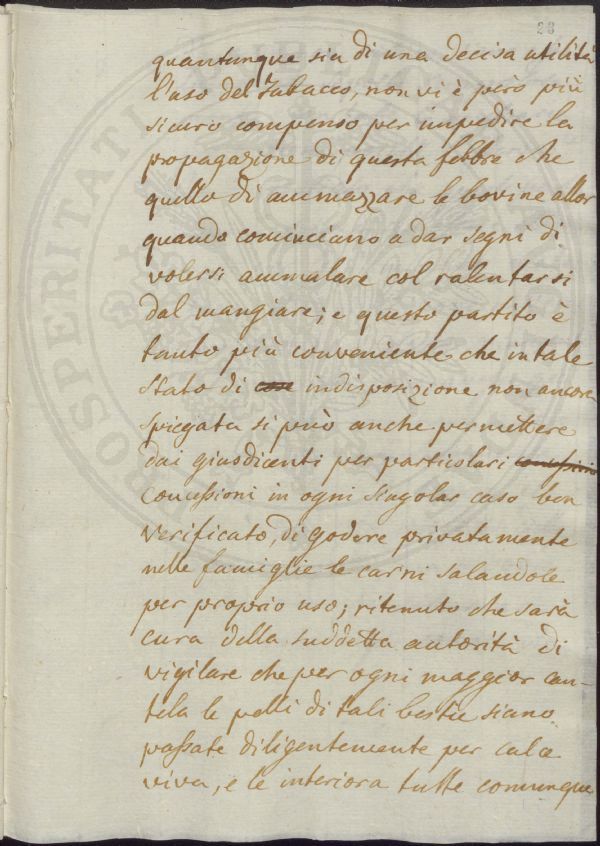 28
quantunque sia di una decisa utilità
l'uso del Tabacco, non vi è però più
sicuro compenso per impedire la
propagazione di questa febbre che
quello di ammazzare le bovine allor
quando cominciano a dar segni di
volersi ammalare col ralentarsi
dal mangiare; e questo partito è
tanto più conveniente che in tale
stato di case indisposizione non ancora
spiegata si può anche permettere
dai giusdicenti per particolari concessioni
concessioni in ogni singolar caso ben
verificato, di godere privatamente
nelle famiglie le carni salandole
per proprio uso; ritenuto che sarà
cura della suddetta autorità di
vigilare che per ogni maggior cau-
tela le pelli di tali bestie siano
passate diligentemente per calce
viva, e le interiora tutte comunque
PROSPERITATI